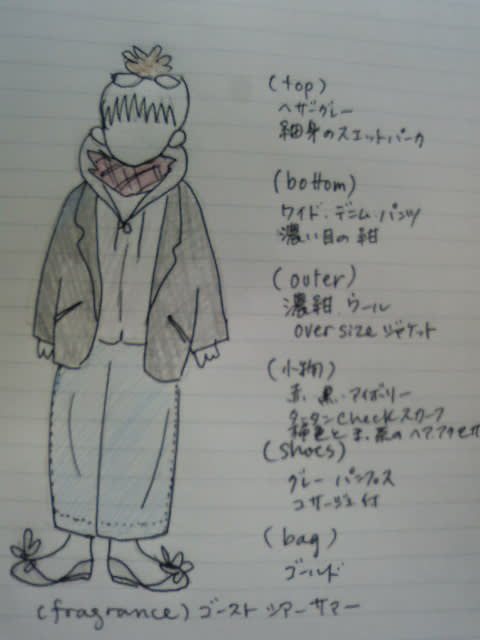 (top)
ヘザーグレー
細身のスエットパーカ
(bottom)
ワイド・デニム・パンツ
濃い目の紺
(outer)
濃紺 ウール
over size ジャケット
(小物)
赤・黒・アイボリー
タータンCheckスカーフ
と 赤、茶のヘアアクセサ
(shoes)
グレー パンプス
コサージュ付
(bag)
ゴールド
(fragrance) ゴースト シアーサマー